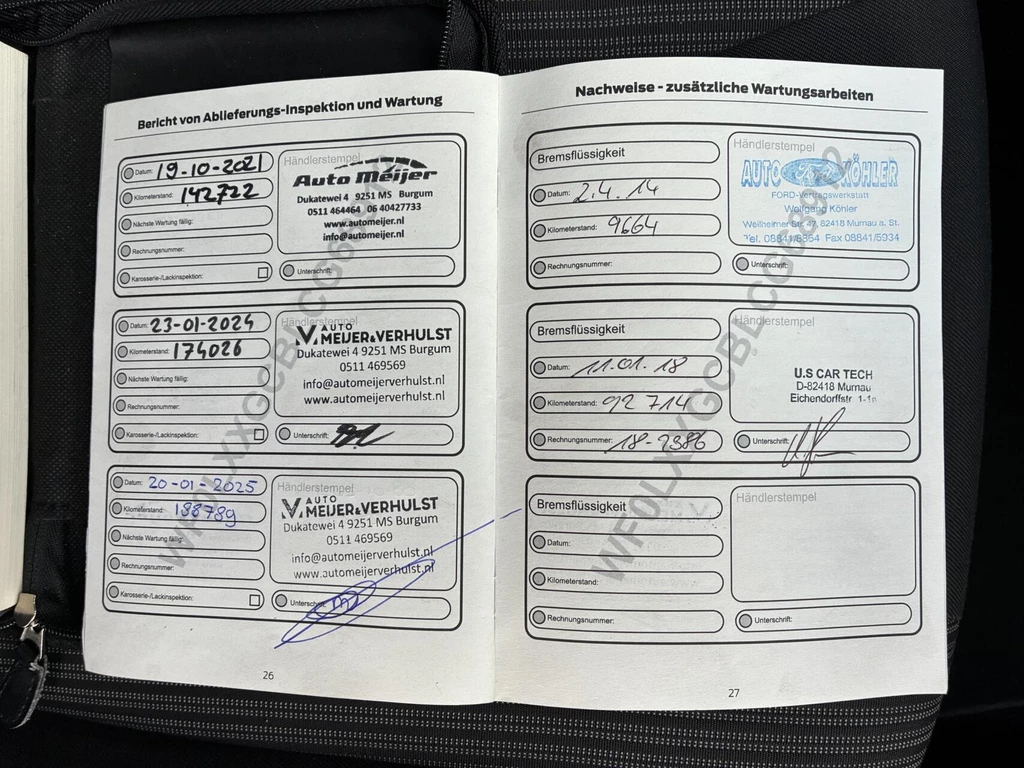 Bericht von Ablieferungs-Inspektion und Wartung
Datum: 19-10-2021
Kilometerstand: 142722
Nächste Wartung fällig:
Rechnungsnummer:
Karosserie-/Lackinspektion:
Händlerstempel
Auto Meijer
Dukatewei 4 9251 MS Burgum
0511 464464 06 40427733
www.automeijer.nl
info@automeijer.nl
Unterschrift:
Datum: 23-01-2024
Kilometerstand: 174026
Nächste Wartung fällig:
Rechnungsnummer:
Karosserie-/Lackinspektion:
Händlerstempel
AUTO
MEIJER&VERHULST
Dukatewei 4 9251 MS Burgum
0511 469569
info@automeijerverhulst.nl
www.automeijerverhulst.nl
Unterschrift:
Datum: 20-01-2025
Kilometerstand: 188789
Nächste Wartung fällig:
Rechnungsnummer:
Karosserie-/Lackinspektion:
Händlerstempel
AUTO
MEIJER&VERHULST
Dukatewei 4 9251 MS Burgum
0511 469569
info@automeijerverhulst.nl
www.automeijerverhulst.nl
Unterschrift:
26
Nachweise - zusätzliche Wartungsarbeiten
Bremsflüssigkeit
Datum: 2.4.14
Kilometerstand: 9664
Rechnungsnummer:
Händlerstempel
AUTO Ford KÖHLER
FORD-Vertragswerkstatt
Wolfgang Köhler
Weilheimer Str. 82418 Murnau a. St.
Tel. Fax 08841/5934
Unterschrift:
Bremsflüssigkeit
Datum: 11.01.18
Kilometerstand: 92 714
Rechnungsnummer: 18-2386
Händlerstempel
U.S CAR TECH
D-82418 Murnau
Eichendorffstr.
Unterschrift:
Bremsflüssigkeit
Datum:
Kilometerstand:
Rechnungsnummer:
Händlerstempel
Unterschrift:
27